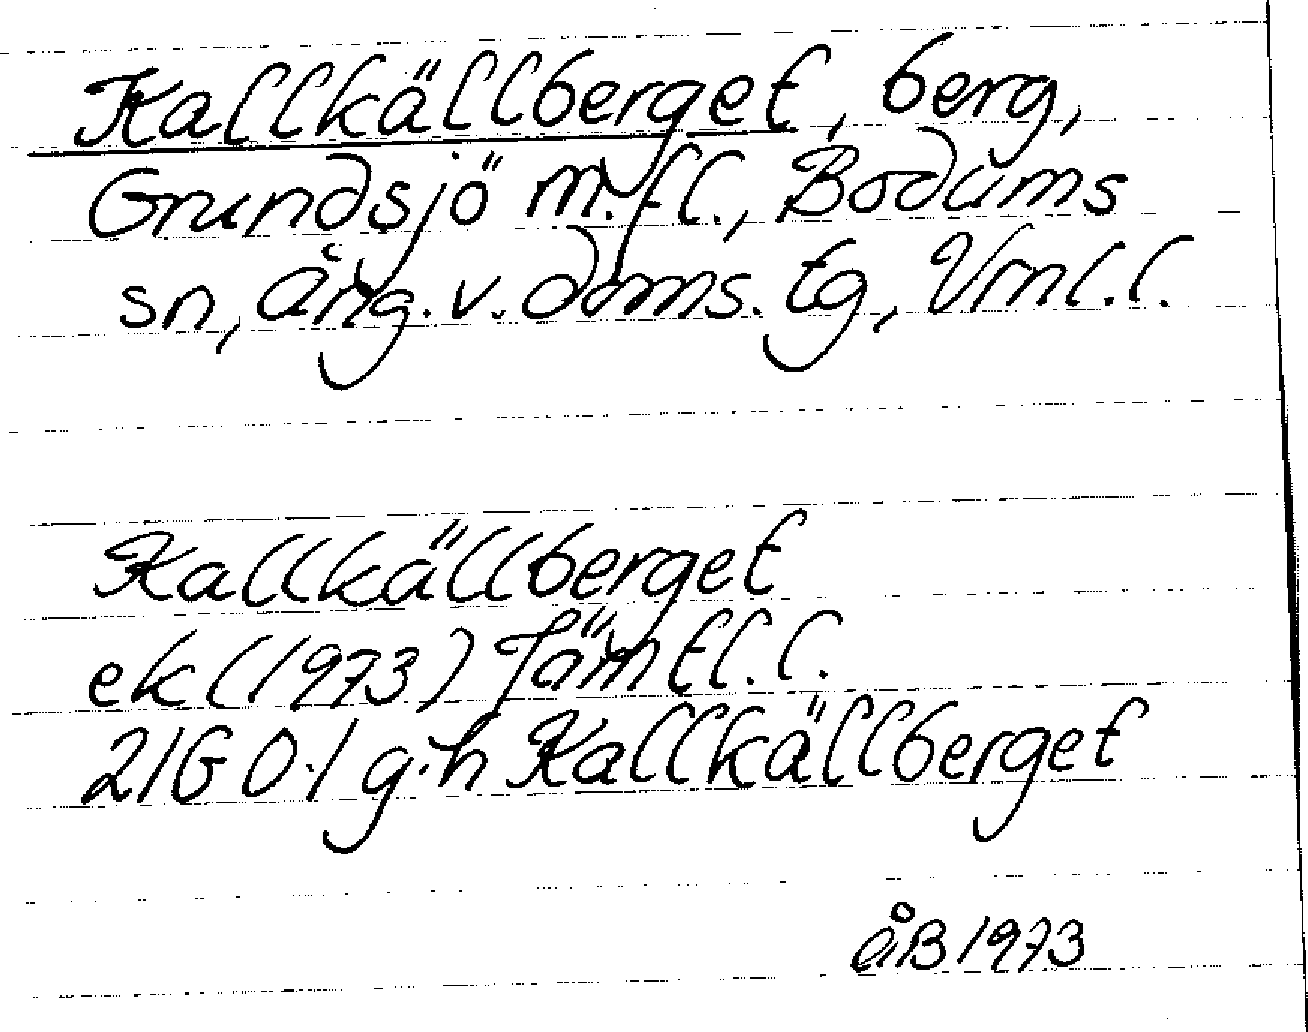 Kallkällberget, berg,
Grundsjö m.fl., Bodums
sn, Ång. v. doms. tg, Vrnl. l.
Kallkällberget
ek (1973) Jämtl. l.
21G 0-1 g-h Kallkällberget
åB 1973